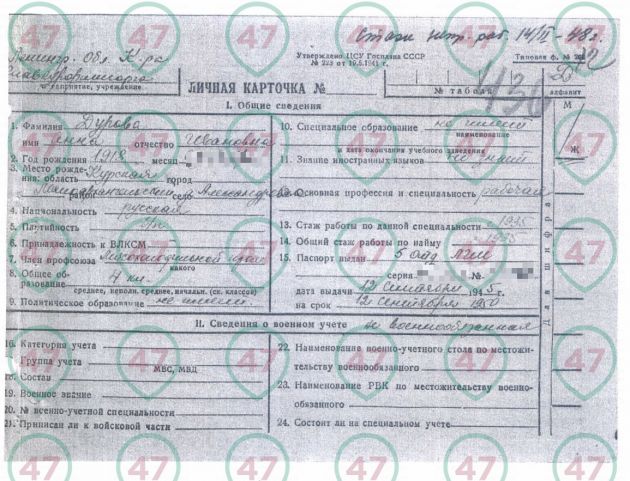 Стаж непр. раб. 14/II-48г.
Ленингр. Обл. К-ра
Утверждено ЦСУ Госплана СССР
№ 223 от 19.5.1941 г.
Типовая ф. №
предприятие, учреждение
ЛИЧНАЯ КАРТОЧКА №
№ табеля
алфавит
М
Ж
Для шифра
I. Общие сведения
1. Фамилия Дурова
имя Анна отчество Ивановна
2. Год рождения 1918 месяц
3. Место рождения: область Курская город
район село Александровка
4. Национальность русская
5. Партийность б/п
6. Принадлежность к ВЛКСМ —
7. Член профсоюза
какого
8. Общее образование 4 кл.
среднее, неполн. среднее, начальн. (ск. классов)
9. Политическое образование не имеет
10. Специальное образование не имеет
наименование
и дата окончания учебного заведения
11. Знание иностранных языков не знает
12. Основная профессия и специальность рабочая
13. Стаж работы по данной специальности 1935
14. Общий стаж работы по найму 1935
15. Паспорт выдан 5 отд.
серия №
дата выдачи 12 сентября 1945 г.
на срок 12 сентября 1950
II. Сведения о военном учете не военнообязанная
16. Категория учета
17. Группа учета
МВС, МВД
18. Состав
19. Военное звание
20. № военно-учетной специальности
21. Приписан ли к войсковой части
22. Наименование военно-учетного стола по местожительству военнообязанного
23. Наименование РВК по местожительству военнообязанного
24. Состоит ли на специальном учете
47